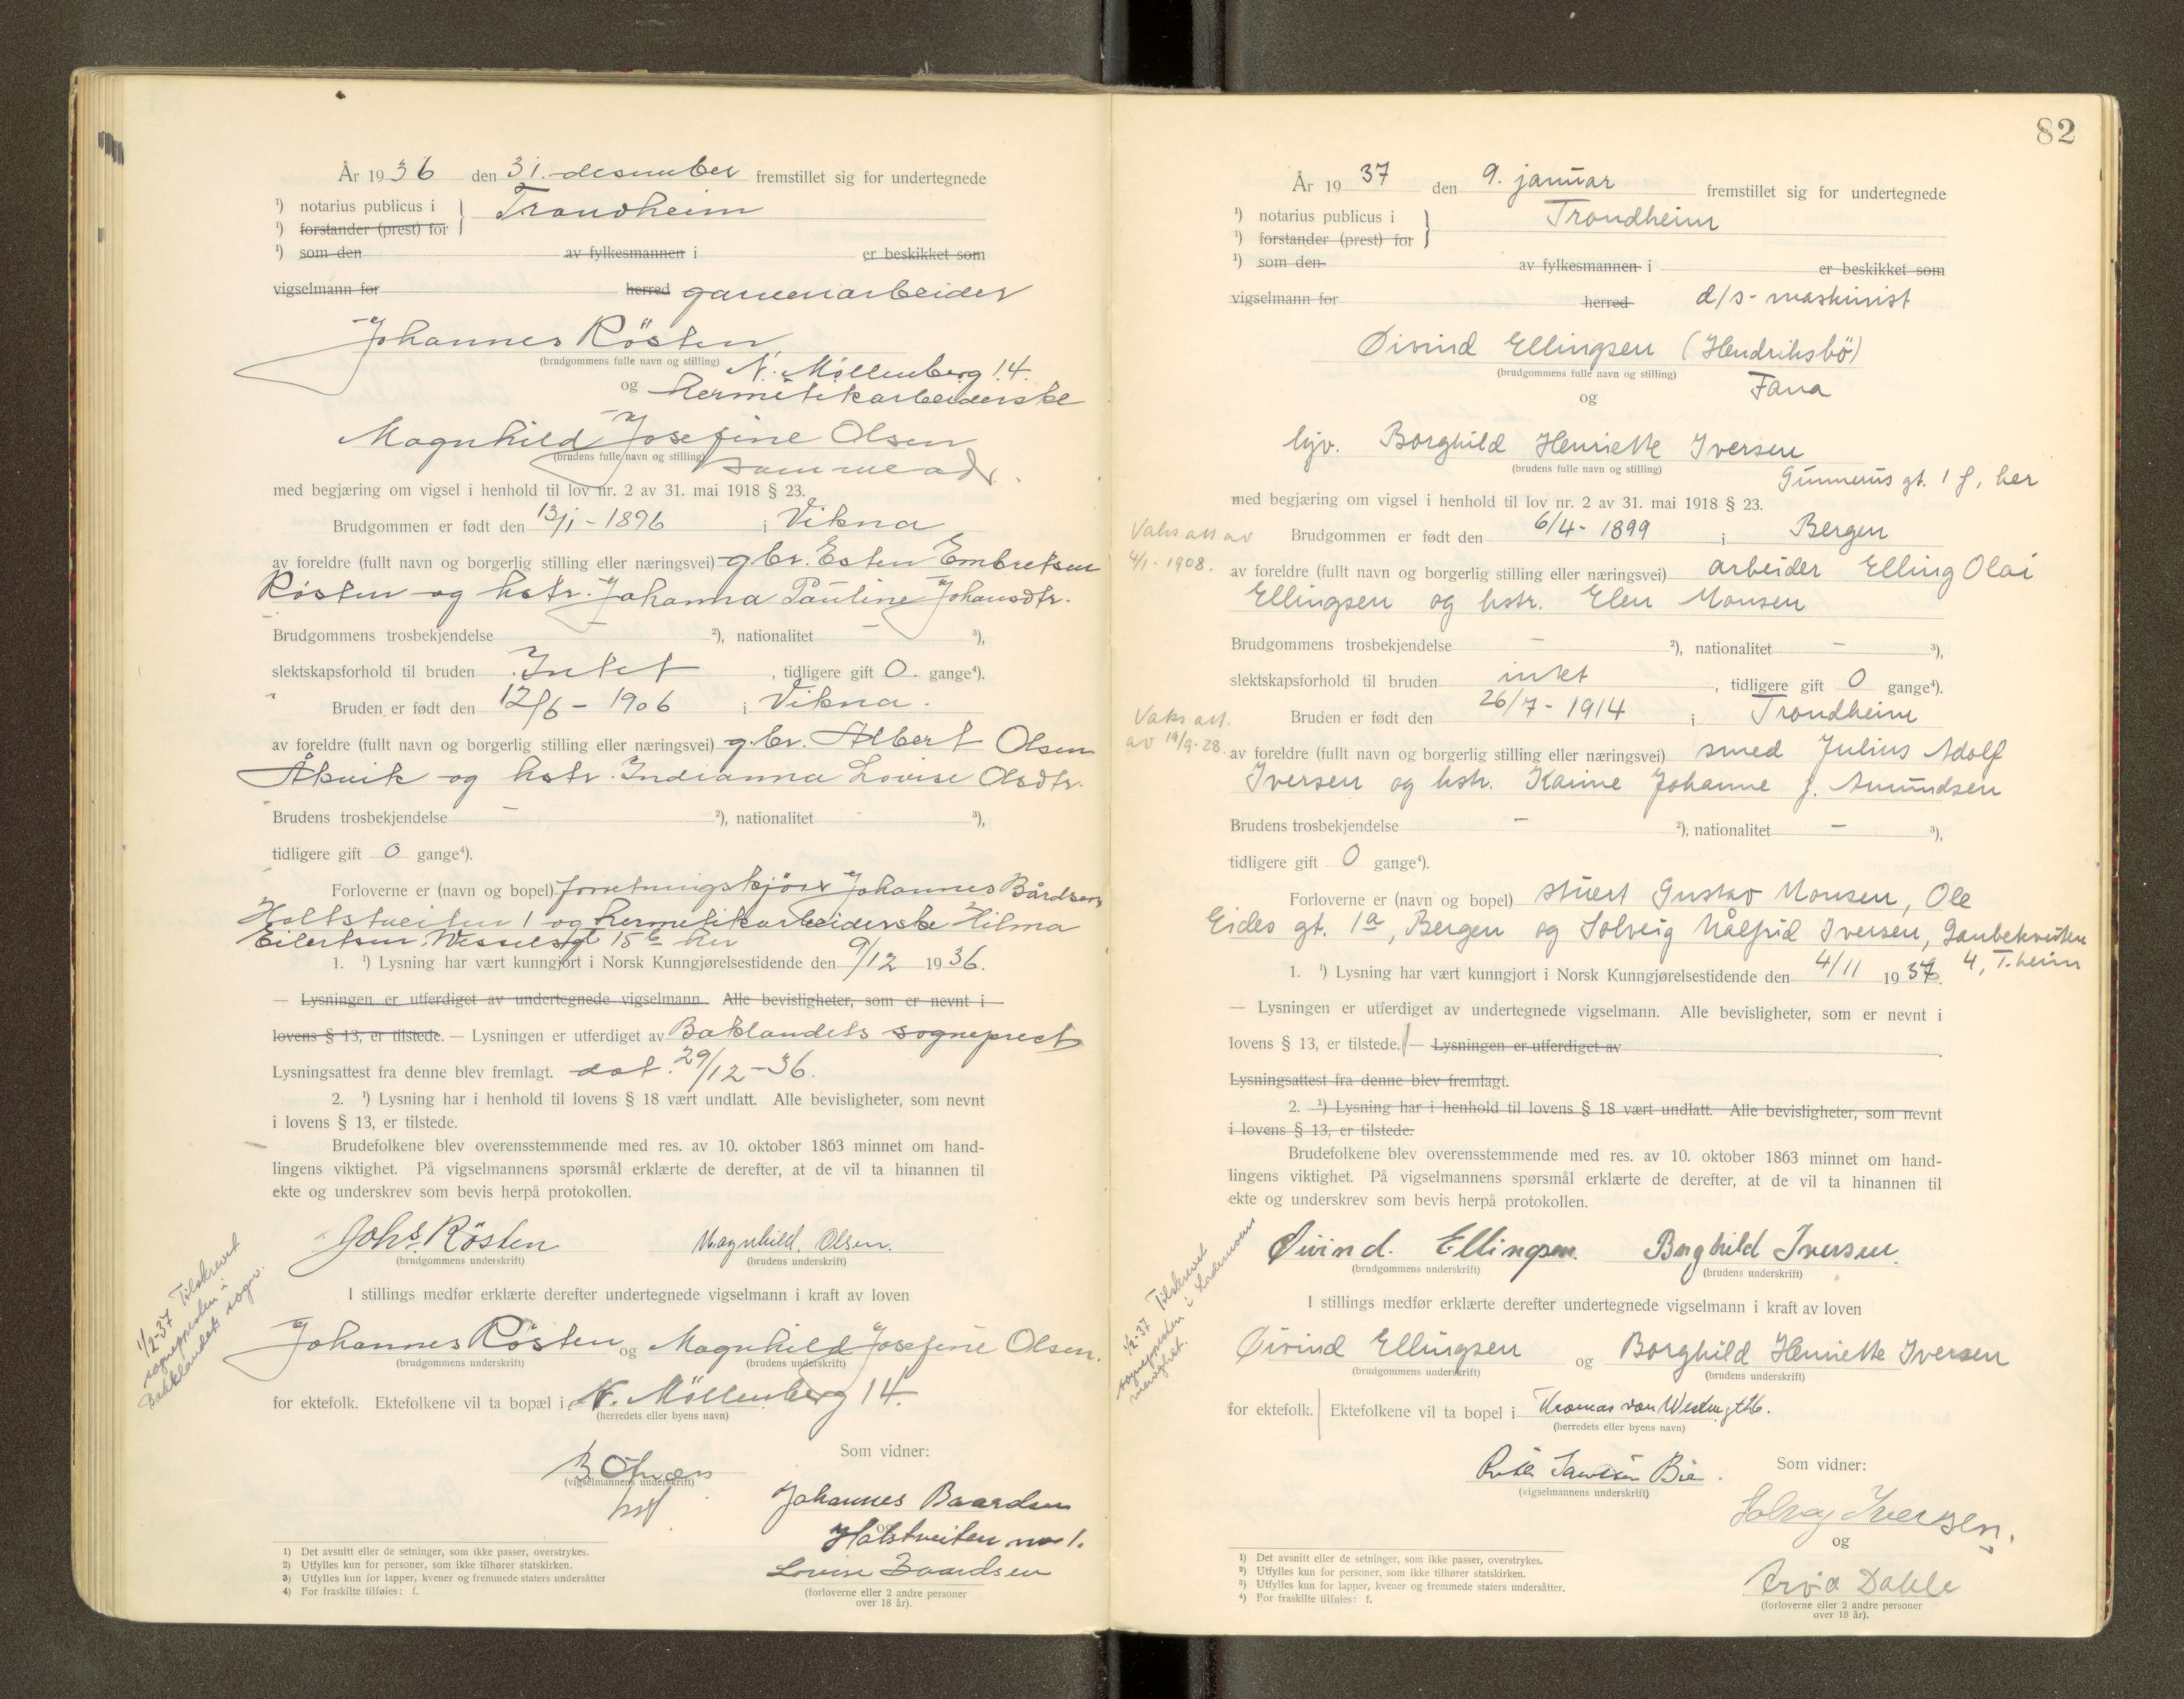 År 1936 den 31. desember fremstillet sig for undertegnede
¹) notarius publicus i } Trondheim
¹) forstander (prest) for
¹) som den av fylkesmannen i er beskikket som
vigselmann for herred garveriarbeider
Johannes Rösten
(brudgommens fulle navn og stilling) N. Møllenberg 14.
og hermetikarbeiderske
Magnhild Josefine Olsen
(brudens fulle navn og stilling) samme adr.
med begjæring om vigsel i henhold til lov nr. 2 av 31. mai 1918 § 23.
Brudgommen er født den 13/1 - 1896 i Vikna
av foreldre (fullt navn og borgerlig stilling eller næringsvei) gbr. Esten Embretsen
Røsten og hstr. Johanna Pauline Johansdtr.
Brudgommens trosbekjendelse - ²), nationalitet - ³),
slektskapsforhold til bruden Intet, tidligere gift 0. gange⁴).
Bruden er født den 12/6 - 1906 i Vikna.
av foreldre (fullt navn og borgerlig stilling eller næringsvei) gbr. Albert Olsen
Åkvik og hstr. Indianna Lovise Olsdtr.
Brudens trosbekjendelse - ²), nationalitet - ³),
tidligere gift 0 gange⁴).
Forloverne er (navn og bopel) forretningskjører Johannes Bårdsen,
Holtstveiten 1 og hermetikarbeiderske Hilma
Eilertsen, Wesselsgt 15b her
1. ¹) Lysning har vært kunngjort i Norsk Kunngjørelsestidende den 9/12 1936.
— Lysningen er utferdiget av undertegnede vigselmann. Alle bevisligheter, som er nevnt i
lovens § 13, er tilstede. — Lysningen er utferdiget av Baklandets sogneprest
Lysningsattest fra denne blev fremlagt. dat. 29/12-36.
2. ¹) Lysning har i henhold til lovens § 18 vært undlatt. Alle bevisligheter, som nevnt
i lovens § 13, er tilstede.
Brudefolkene blev overensstemmende med res. av 10. oktober 1863 minnet om hand-
lingens viktighet. På vigselmannens spørsmål erklærte de derefter, at de vil ta hinannen til
ekte og underskrev som bevis herpå protokollen.
Johs. Rösten Magnhild. Olsen.
(brudgommens underskrift) (brudens underskrift)
I stillings medfør erklærte derefter undertegnede vigselmann i kraft av loven
Johannes Rösten og Magnhild Josefine Olsen.
(brudgommens underskrift) (brudens underskrift)
1/2-37 Tilskrevet
sognepresten i
Bakklandets sogn.
for ektefolk. Ektefolkene vil ta bopæl i N. Møllenberg 14.
(herredets eller byens navn)
Som vidner:
(vigselmannens underskrift)
Johannes Baardsen
og
Holstveiten no 1.
Lovise Baardsen
(forloverne eller 2 andre personer
over 18 år).
1) Det avsnitt eller de setninger, som ikke passer, overstrykes.
2) Utfylles kun for personer, som ikke tilhører statskirken.
3) Utfylles kun for lapper, kvener og fremmede staters undersåtter
4) For fraskilte tilføies: f.
82
År 1937 den 9. januar fremstillet sig for undertegnede
¹) notarius publicus i } Trondheim
¹) forstander (prest) for
¹) som den av fylkesmannen i er beskikket som
vigselmann for herred d/s - maskinist
Øivind Ellingsen (Hendriksbö)
(brudgommens fulle navn og stilling) Fana
og
hjv. Borghild Henriette Iversen
(brudens fulle navn og stilling)
Gunnerus gt. 1 f, her
med begjæring om vigsel i henhold til lov nr. 2 av 31. mai 1918 § 23.
Vaks att av
4/1 - 1908.
Brudgommen er født den 6/4 - 1899 i Bergen
av foreldre (fullt navn og borgerlig stilling eller næringsvei) arbeider Elling Olai
Ellingsen og hstr. Elen Monsen
Brudgommens trosbekjendelse - ²), nationalitet - ³),
slektskapsforhold til bruden intet, tidligere gift 0 gange⁴).
Vaks att.
av 19/9-28.
Bruden er født den 26/7 - 1914 i Trondheim
av foreldre (fullt navn og borgerlig stilling eller næringsvei) smed Julius Adolf
Iversen og hstr. Karine Johanne f. Amundsen
Brudens trosbekjendelse - ²), nationalitet - ³),
tidligere gift 0 gange⁴).
Forloverne er (navn og bopel) stuert Gustav Monsen, Ole
Eides gt. 1a, Bergen og Solveig Målfrid Iversen, Gaubekveiten
4, T.heim
1. ¹) Lysning har vært kunngjort i Norsk Kunngjørelsestidende den 4/11 1936.
— Lysningen er utferdiget av undertegnede vigselmann. Alle bevisligheter, som er nevnt i
lovens § 13, er tilstede. — Lysningen er utferdiget av
Lysningsattest fra denne blev fremlagt.
2. ¹) Lysning har i henhold til lovens § 18 vært undlatt. Alle bevisligheter, som nevnt
i lovens § 13, er tilstede.
Brudefolkene blev overensstemmende med res. av 10. oktober 1863 minnet om hand-
lingens viktighet. På vigselmannens spørsmål erklærte de derefter, at de vil ta hinannen til
ekte og underskrev som bevis herpå protokollen.
Øivind. Ellingsen. Borghild Iversen.
(brudgommens underskrift) (brudens underskrift)
I stillings medfør erklærte derefter undertegnede vigselmann i kraft av loven
Øivind Ellingsen og Borghild Henriette Iversen
(brudgommens underskrift) (brudens underskrift)
1/2-37 Tilskrevet
sognepresten i Lademoens
menighet.
for ektefolk. Ektefolkene vil ta bopel i Thomas von Westensgt 26.
(herredets eller byens navn)
Som vidner:
(vigselmannens underskrift)
Solveig Iversen.
og
Arvid Dahle
(forloverne eller 2 andre personer
over 18 år).
¹) Det avsnitt eller de setninger, som ikke passer, overstrykes.
²) Utfylles kun for personer, som ikke tilhører statskirken.
³) Utfylles kun for lapper, kvener og fremmede staters undersåtter.
⁴) For fraskilte tilføies: f.